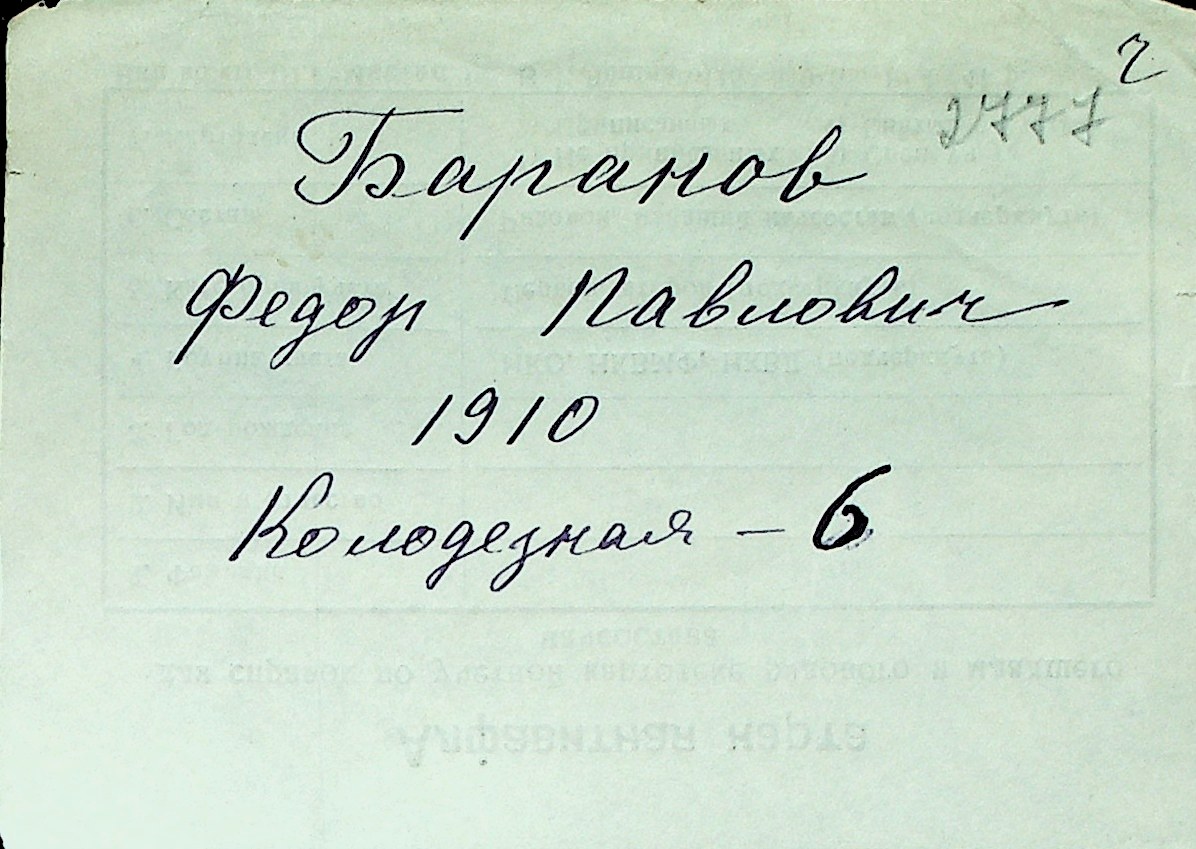 ч
2777
Баранов
Федор Павлович
1910
Колодезная – 6